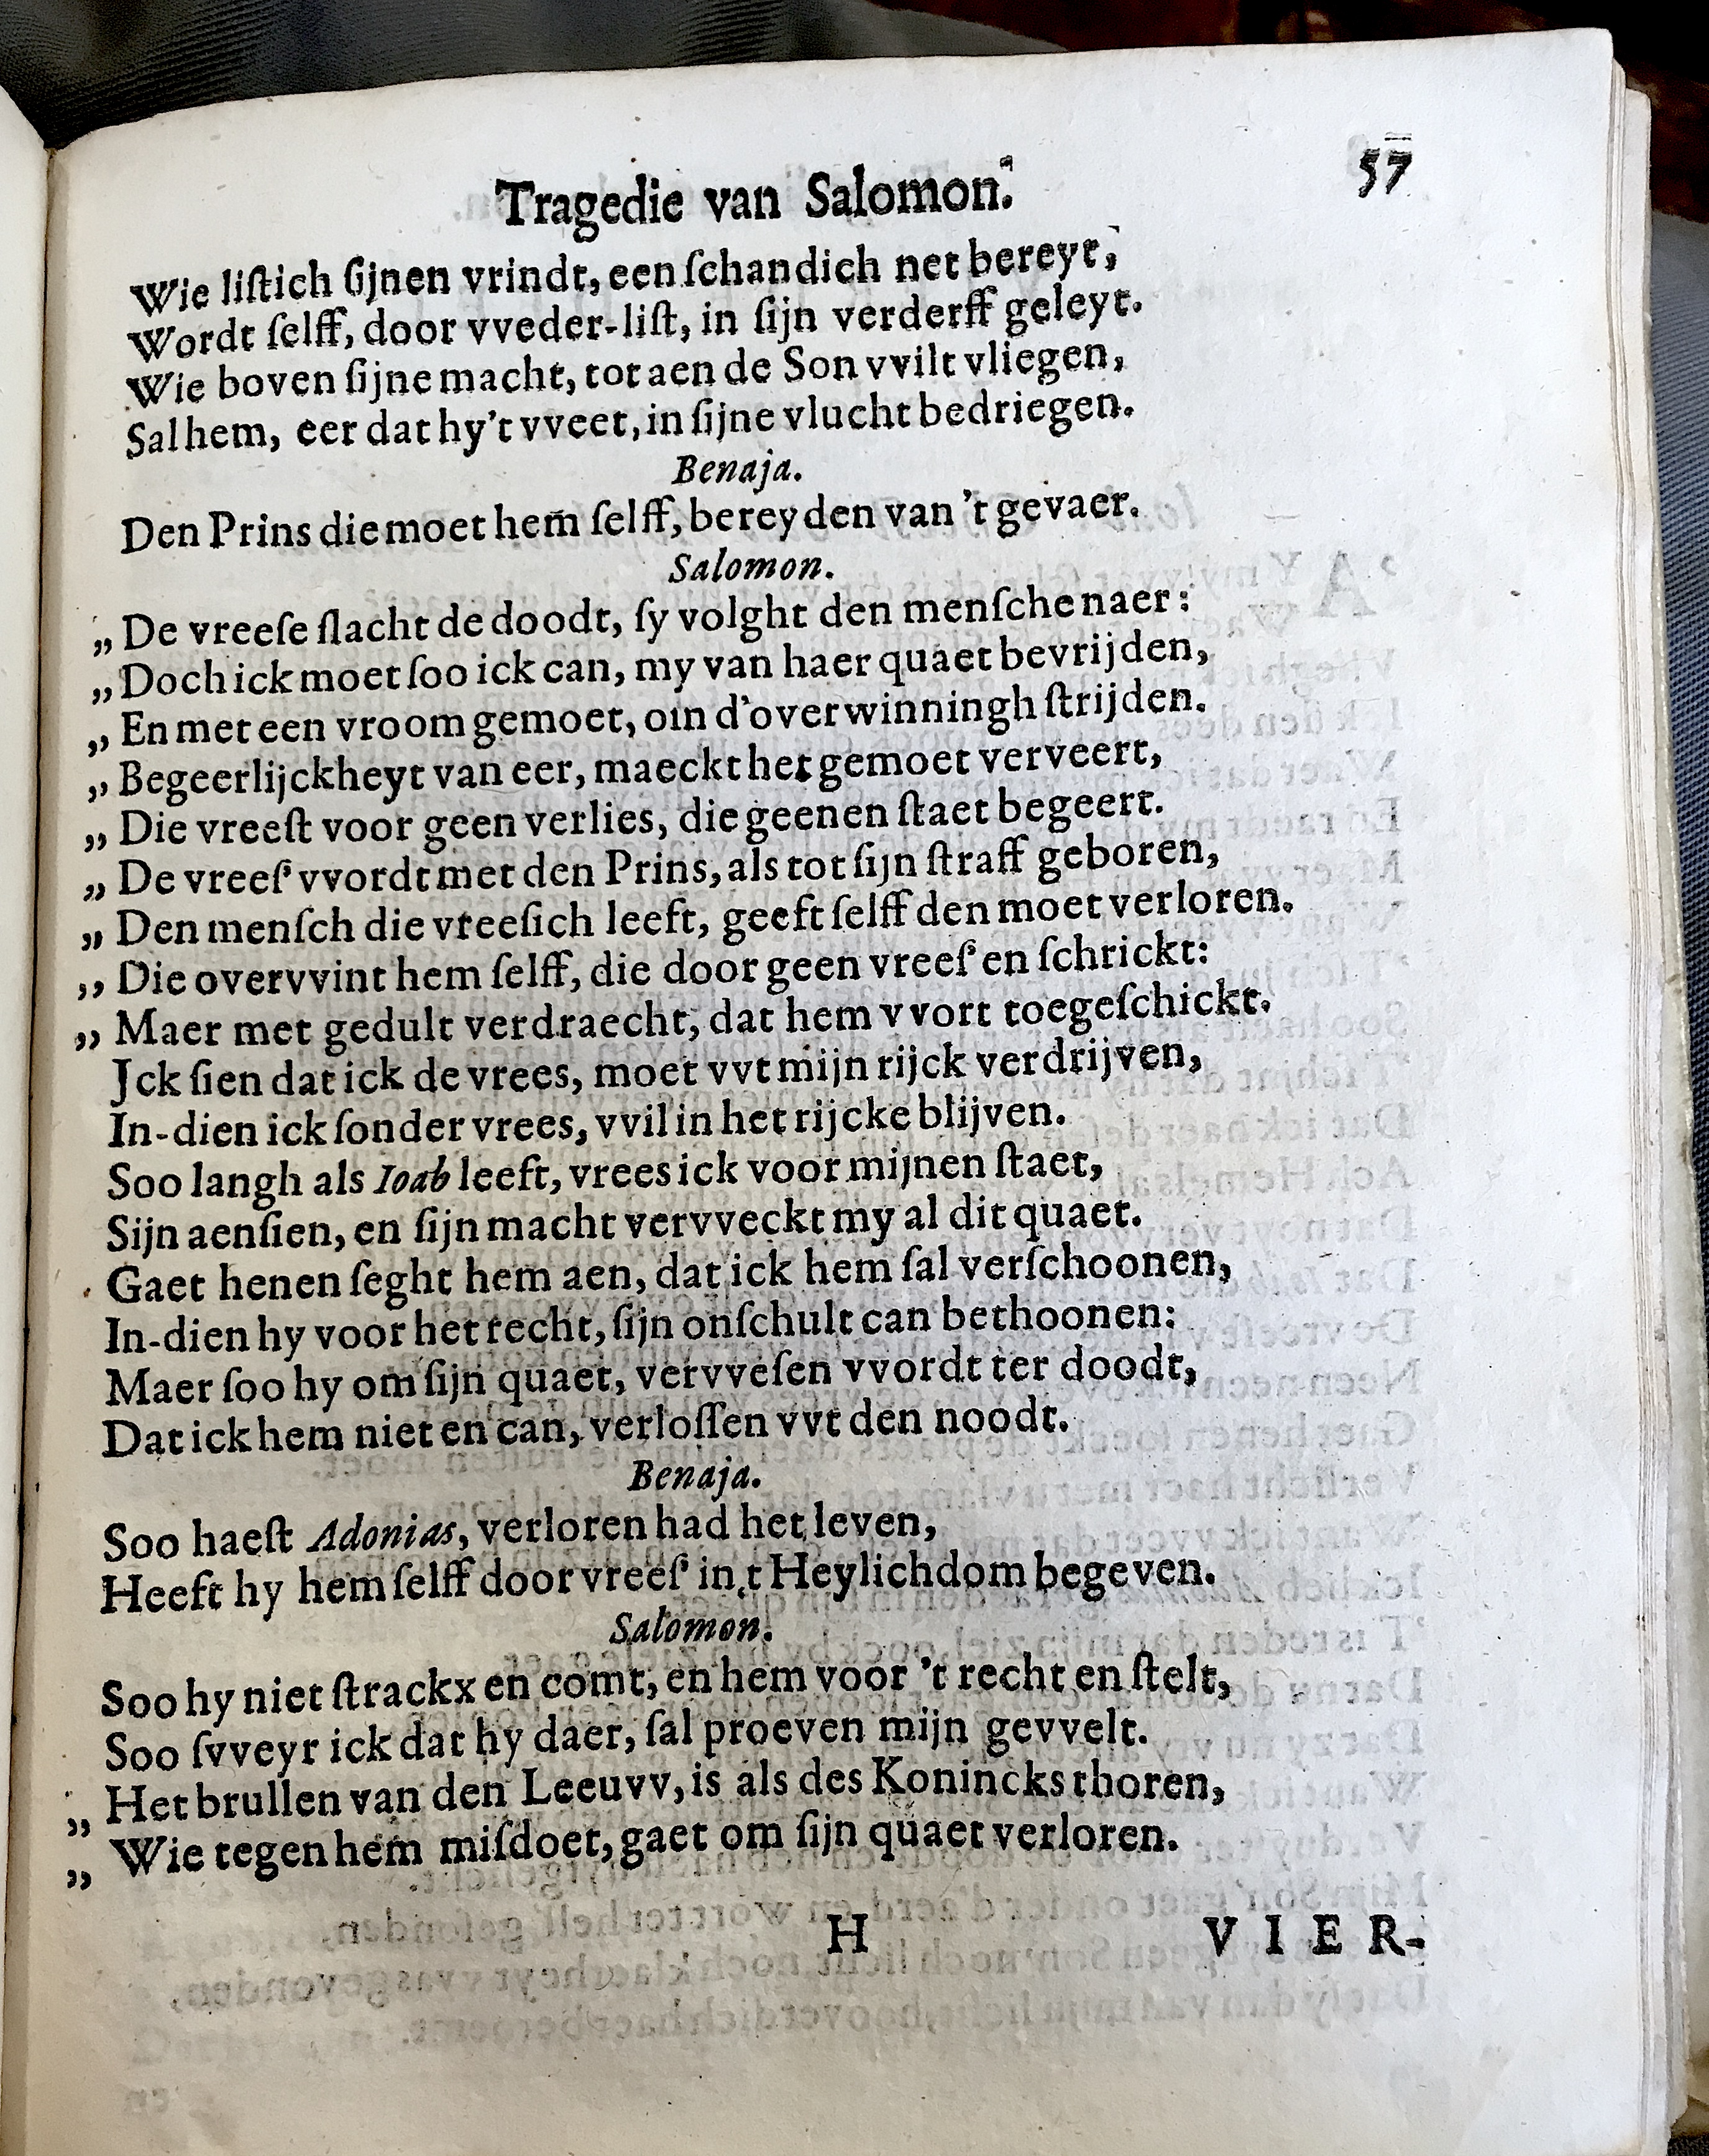 Tragedie van Salomon. 57
Wie liſtich ſijnen vrindt, een ſchandich net bereyt,
Wordt ſelff, door vveder-liſt, in ſijn verderff geleyt.
Wie boven ſijne macht, tot aen de Son vvilt vliegen,
Sal hem, eer dat hy't vveet, in ſijne vlucht bedriegen.
Benaja.
Den Prins die moet hem ſelff, bereyden van 't gevaer.
Salomon.
„ De vreeſe ſlacht de doodt, ſy volght den menſche naer:
„ Doch ick moet ſoo ick can, my van haer quaet bevrijden,
„ En met een vroom gemoet, om d'overwinningh ſtrijden.
„ Begeerlijckheyt van eer, maeckt het gemoet verveert,
„ Die vreeſt voor geen verlies, die geenen ſtaet begeert.
„ De vreeſ' vvordt met den Prins, als tot ſijn ſtraff geboren,
„ Den menſch die vreeſich leeft, geeft ſelff den moet verloren.
„ Die overvvint hem ſelff, die door geen vreeſ' en ſchrickt:
„ Maer met gedult verdraecht, dat hem vvort toegeſchickt.
Jck ſien dat ick de vrees, moet vvt mijn rijck verdrijven,
In-dien ick ſonder vrees, vvil in het rijcke blijven.
Soo langh als Ioab leeft, vrees ick voor mijnen ſtaet,
Sijn aenſien, en ſijn macht vervveckt my al dit quaet.
Gaet henen ſeght hem aen, dat ick hem ſal verſchoonen,
In-dien hy voor het recht, ſijn onſchult can bethoonen:
Maer ſoo hy om ſijn quaet, vervveſen vvordt ter doodt,
Dat ick hem niet en can, verloſſen vvt den noodt.
Benaja.
Soo haeſt Adonias, verloren had het leven,
Heeft hy hem ſelff door vreeſ' in,t Heylichdom begeven.
Salomon.
Soo hy niet ſtrackx en comt, en hem voor 't recht en ſtelt,
Soo ſvveyr ick dat hy daer, ſal proeven mijn gevvelt.
„ Het brullen van den Leeuvv, is als des Konincks thoren,
„ Wie tegen hem miſdoet, gaet om ſijn quaet verloren.
H VIER-